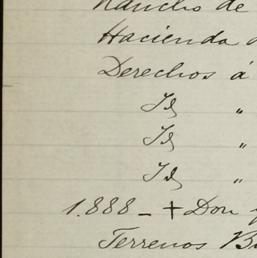 Rancho de
Hacienda
Derechos á
Id „
Id „
Id „
1.888 - + Don
Terrenos